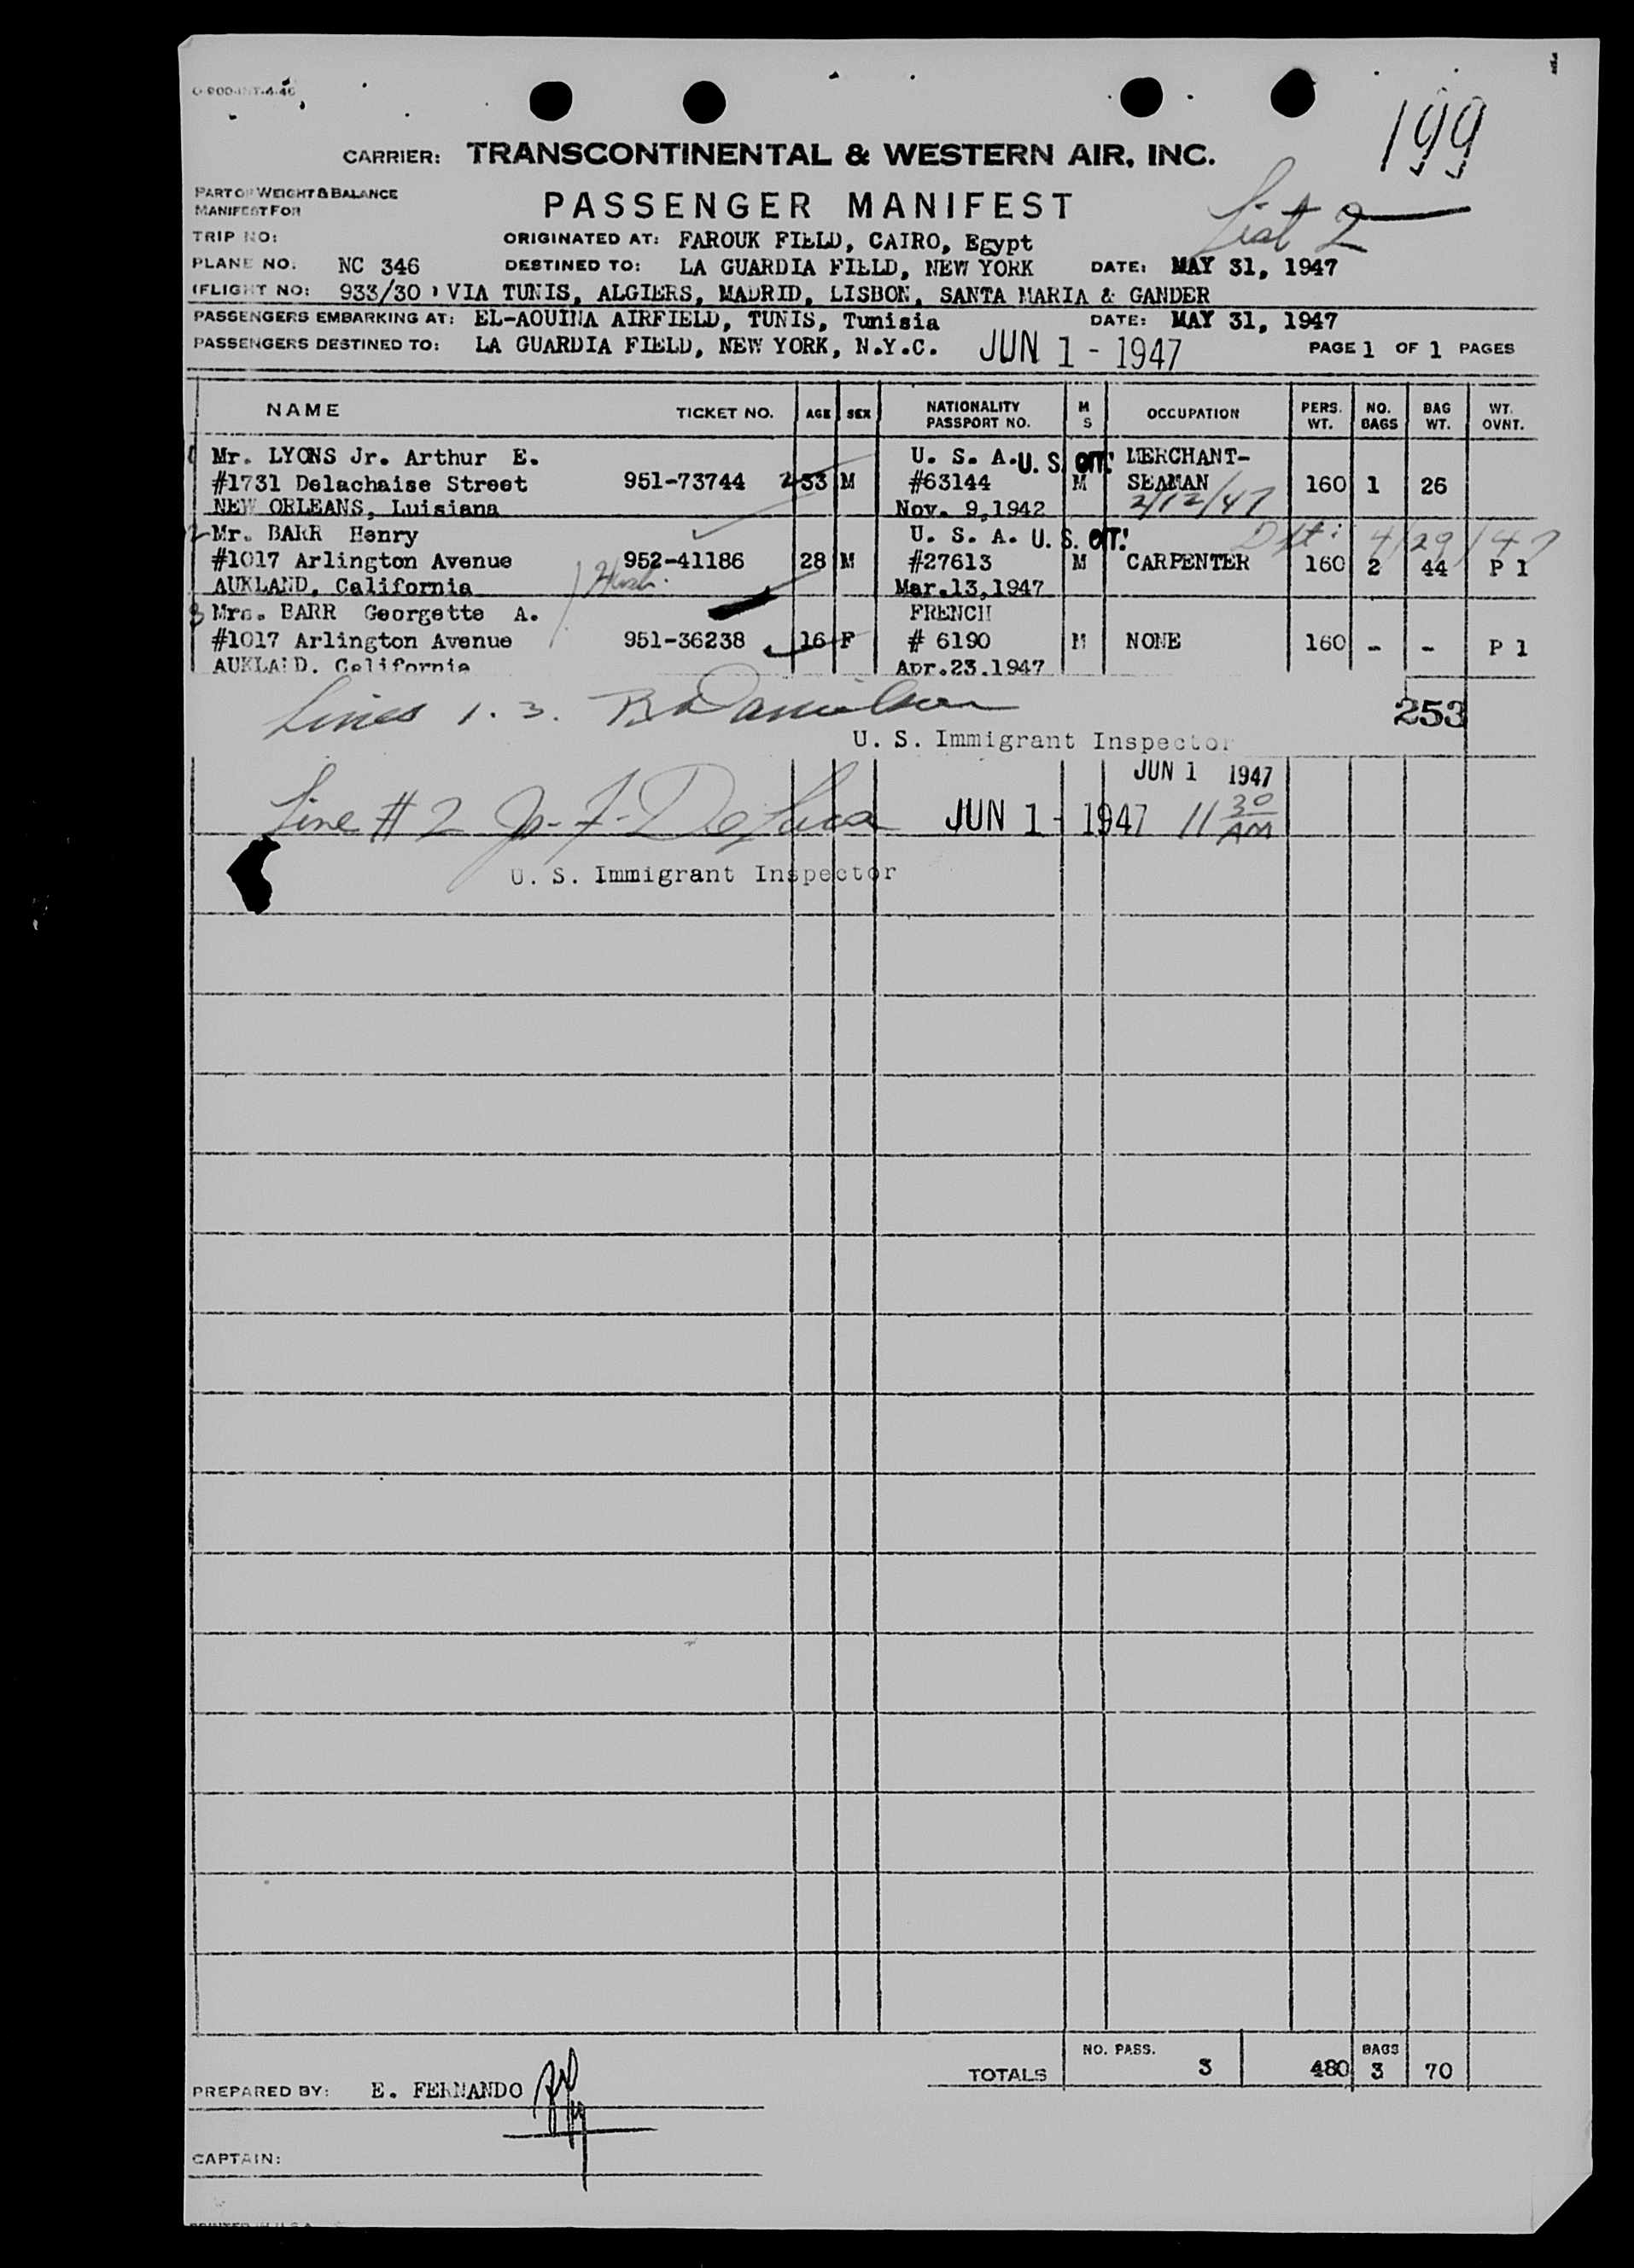 199
CARRIER: TRANSCONTINENTAL & WESTERN AIR, INC.
PART OF WEIGHT & BALANCE
MANIFEST FOR
PASSENGER MANIFEST
List 2
TRIP NO: ORIGINATED AT: FAROUK FIELD, CAIRO, Egypt
PLANE NO. NC 346 DESTINED TO: LA GUARDIA FIELD, NEW YORK DATE: MAY 31, 1947
(FLIGHT NO: 933/30 ) VIA TUNIS, ALGIERS, MADRID, LISBON, SANTA MARIA & GANDER
PASSENGERS EMBARKING AT: EL-AOUINA AIRFIELD, TUNIS, Tunisia DATE: MAY 31, 1947
PASSENGERS DESTINED TO: LA GUARDIA FIELD, NEW YORK, N.Y.C. JUN 1 - 1947 PAGE 1 OF 1 PAGES
NAME TICKET NO. AGE SEX NATIONALITY PASSPORT NO. M S OCCUPATION PERS. WT. NO. BAGS BAG WT. WT. OVNT.
1 Mr. LYONS Jr. Arthur E. U. S. A. U. S. CIT. MERCHANT-
#1731 Delachaise Street 951-73744 33 M #63144 M SEAMAN 160 1 26
NEW ORLEANS, Luisiana Nov. 9,1942 2/12/47
2 Mr. BARR Henry U. S. A. U. S. CIT. 4/29/47
#1017 Arlington Avenue 952-41186 28 M #27613 M CARPENTER 160 2 44 P 1
AUKLAND, California Mar.13,1947
3 Mrs. BARR Georgette A. FRENCH
#1017 Arlington Avenue 951-36238 16 F # 6190 M NONE 160 - - P 1
AUKLAND. California Apr.23.1947
Lines 1. 3. Danielson 253
U. S. Immigrant Inspector
JUN 1 1947
Line # 2 J. F. DeLuca JUN 1 - 1947 11 30 AM
U. S. Immigrant Inspector
TOTALS NO. PASS. 3 480 BAGS 3 70
PREPARED BY: E. FERNANDO
CAPTAIN: